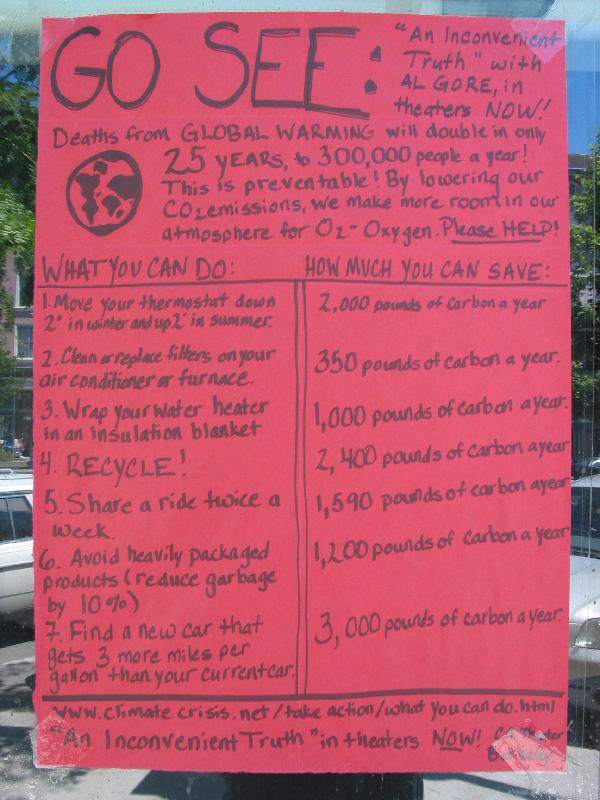 GO SEE:
"An Inconvenient
Truth" with
AL GORE, in
theaters NOW!
Deaths from GLOBAL WARMING will double in only
25 YEARS, to 300,000 people a year!
This is preventable! By lowering our
CO2 emissions, we make more room in our
atmosphere for O2- Oxygen. Please HELP!
WHAT YOU CAN DO:
HOW MUCH YOU CAN SAVE:
1. Move your thermostat down
2° in winter and up 2° in summer.
2,000 pounds of Carbon a year
2. Clean or replace filters on your
air conditioner or furnace.
350 pounds of Carbon a year.
3. Wrap your water heater
in an insulation blanket
1,000 pounds of Carbon a year.
4. RECYCLE!
2,400 pounds of Carbon a year
5. Share a ride twice a
week.
1,590 pounds of Carbon a year
6. Avoid heavily packaged
products (reduce garbage
by 10%)
1,200 pounds of Carbon a year
7. Find a new car that
gets 3 more miles per
gallon than your current car.
3,000 pounds of Carbon a year.
www.climatecrisis.net/take action/what you can do.html
"An Inconvenient Truth" in theaters NOW! CA Theater
Berkeley